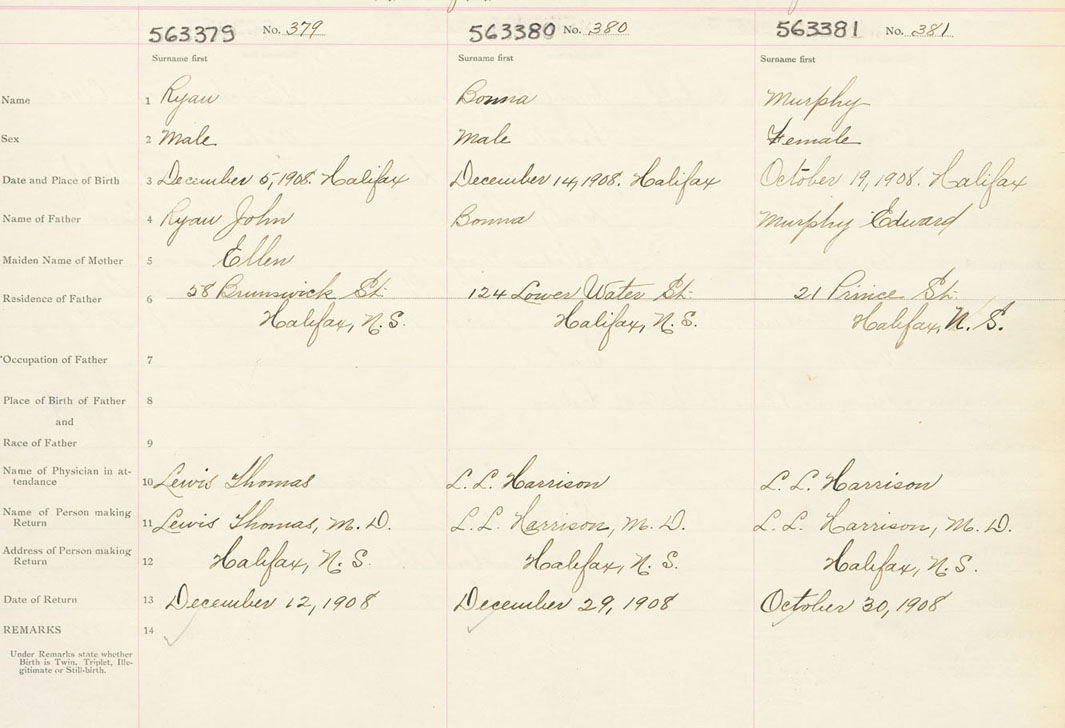 563379 No. 379 563380 No. 380 563381 No. 381
Surname first Surname first Surname first
Name 1 Ryan Bonna Murphy
Sex 2 Male Male Female
Date and Place of Birth 3 December 5, 1908. Halifax December 14, 1908. Halifax October 19, 1908. Halifax
Name of Father 4 Ryan John Bonna Murphy Edward
Maiden Name of Mother 5 Ellen
Residence of Father 6 58 Brunswick St. 124 Lower Water St. 21 Prince St.
Halifax, N.S. Halifax, N.S. Halifax, N.S.
Occupation of Father 7
Place of Birth of Father 8
and
Race of Father 9
Name of Physician in at-
tendance 10 Lewis Thomas L. L. Harrison L. L. Harrison
Name of Person making
Return 11 Lewis Thomas, M.D. L. L. Harrison, M.D. L. L. Harrison, M.D.
Address of Person making
Return 12 Halifax, N.S. Halifax, N.S. Halifax, N.S.
Date of Return 13 December 12, 1908 December 29, 1908 October 30, 1908
REMARKS 14
Under Remarks state whether
Birth is Twin, Triplet, Ille-
gitimate or Still-birth.